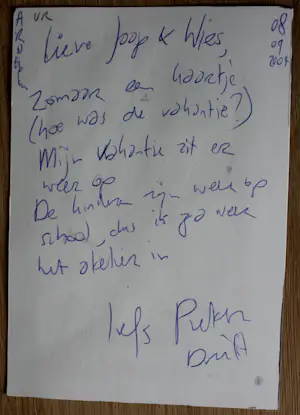 ARNHEM
VR
08
09
2004
Lieve Joop & Wies,
Zomaar een kaartje
(hoe was de vakantie?)
Mijn vakantie zit er
weer op
De kinderen zijn weer op
school, dus ik ga weer
het atelier in
liefs Pieter